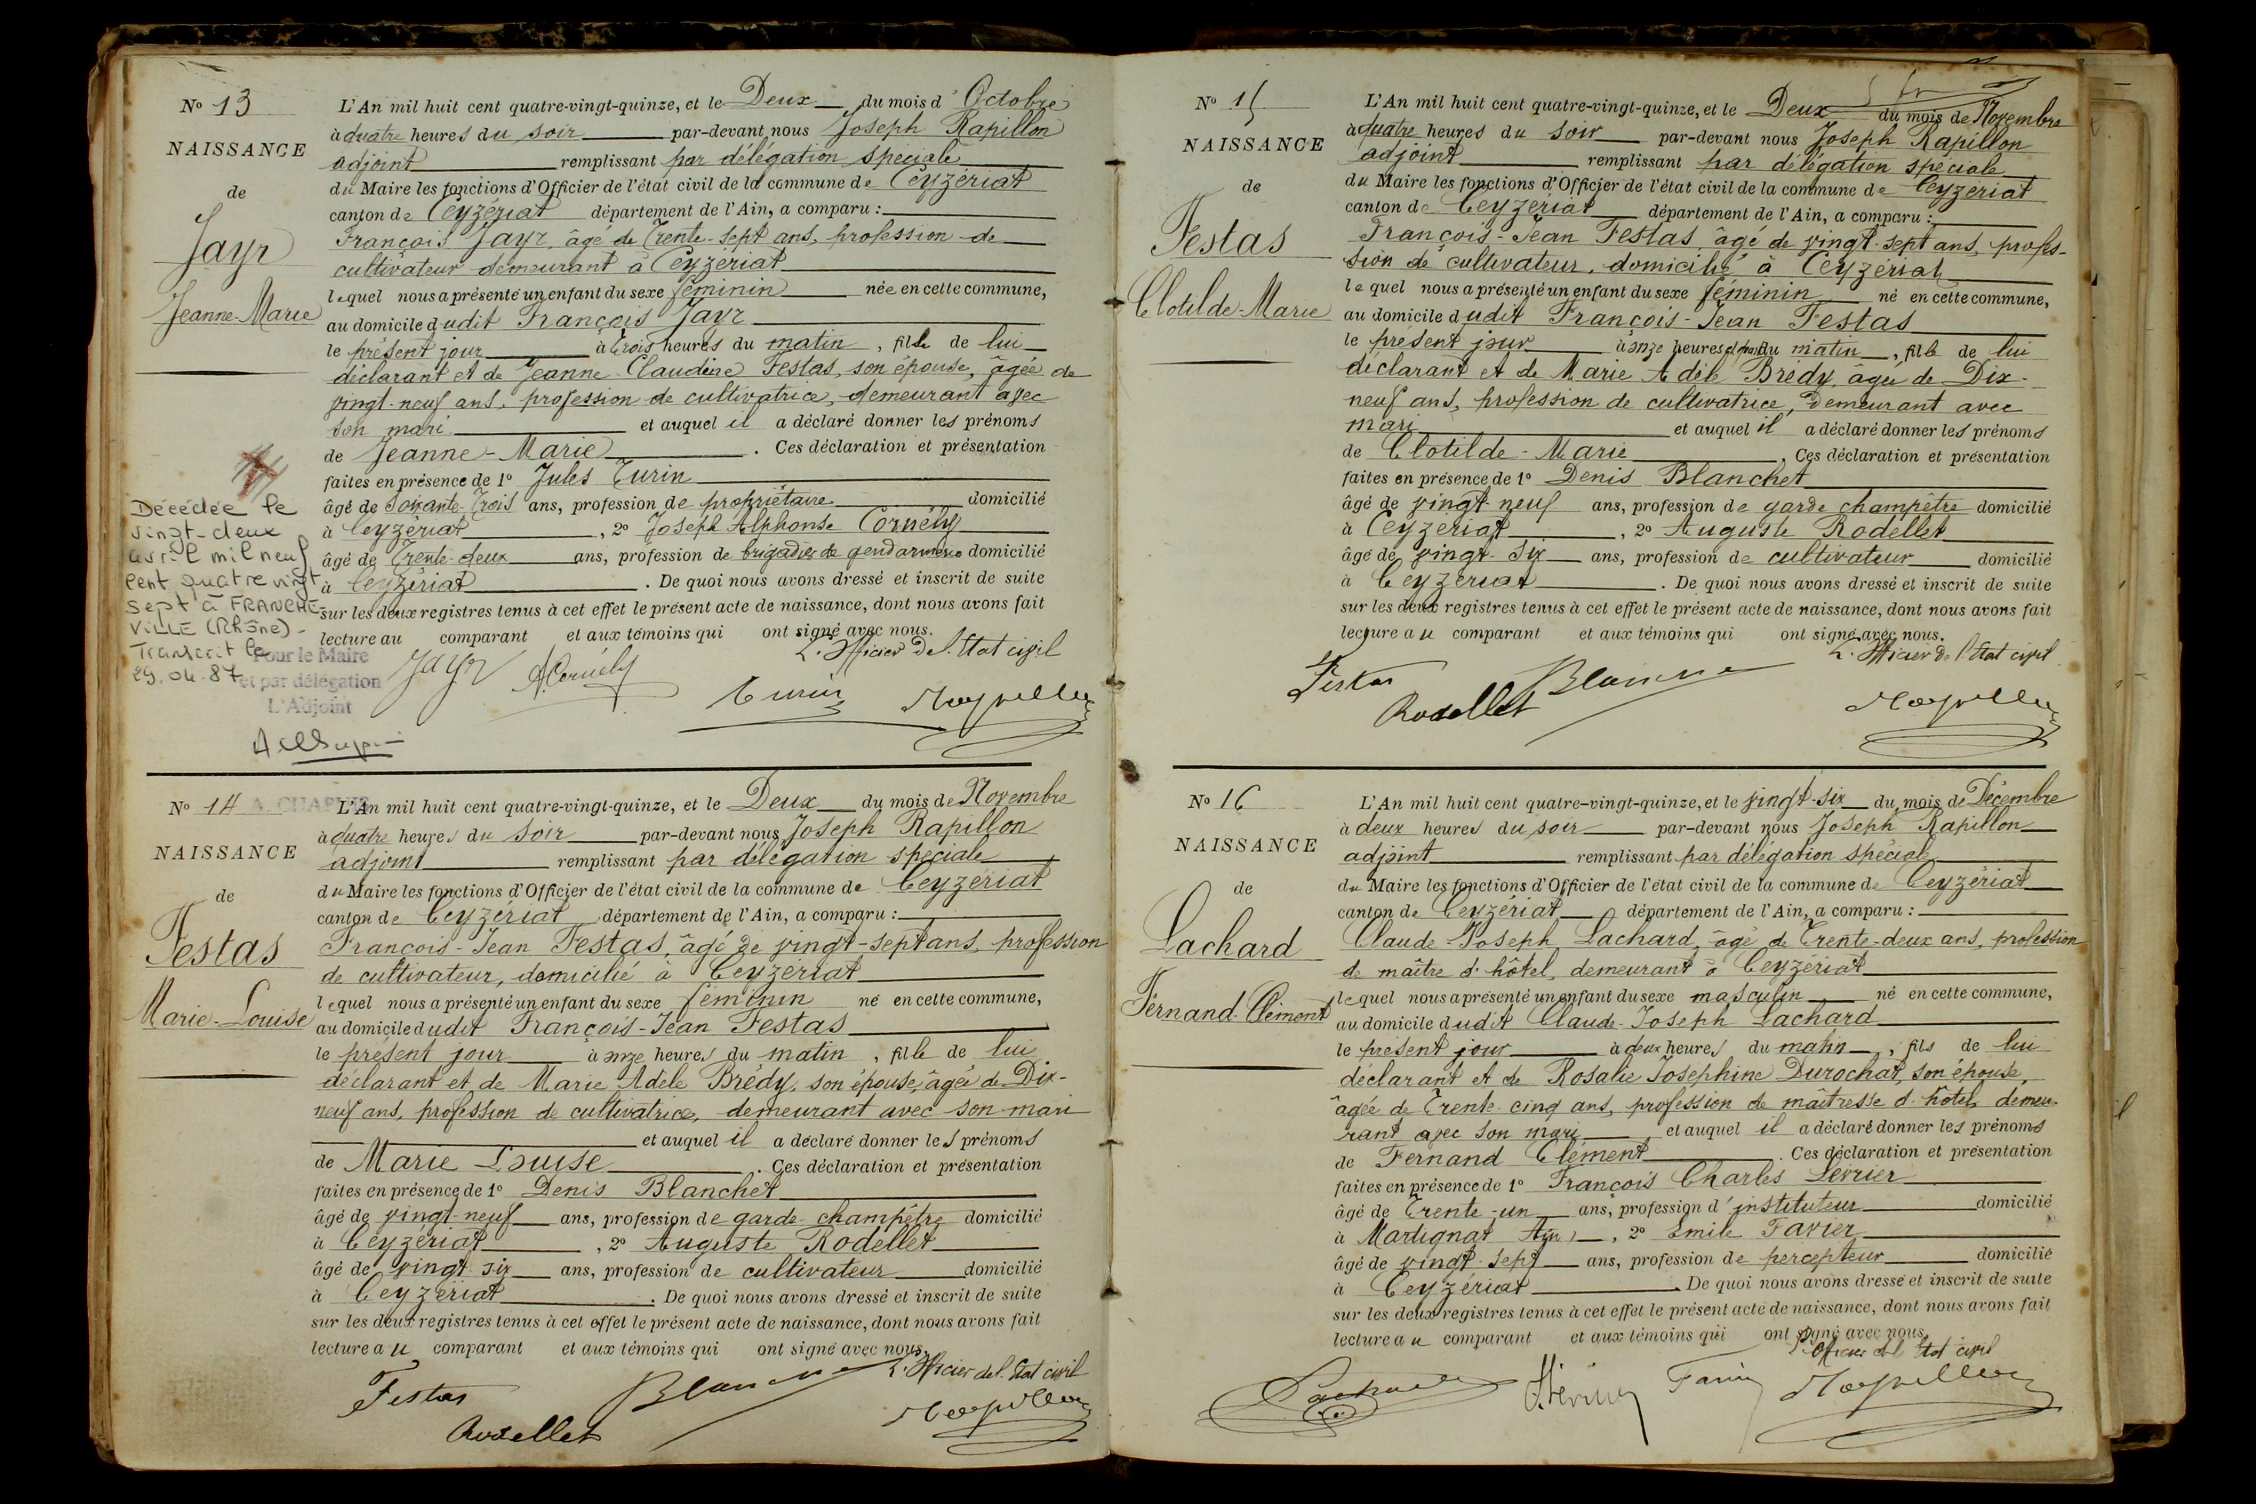 N° 13
NAISSANCE
de
Jayr
Jeanne-Marie
L'An mil huit cent quatre-vingt-quinze, et le Deux du mois d'Octobre
à quatre heures du soir par-devant nous Joseph Rapillon
adjoint remplissant par délégation spéciale
du Maire les fonctions d'Officier de l'état civil de la commune de Ceyzériat
canton de Ceyzériat département de l'Ain, a comparu :
François Jayr, âgé de Trente-sept ans, profession de
cultivateur demeurant à Ceyzériat
lequel nous a présenté un enfant du sexe féminin née en cette commune,
au domicile dudit François Jayr
le présent jour à trois heures du matin, fille de lui
déclarant et de Jeanne Claudine Festas, son épouse, âgée de
vingt-neuf ans, profession de cultivatrice, demeurant avec
son mari et auquel il a déclaré donner les prénoms
de Jeanne-Marie. Ces déclaration et présentation
faites en présence de 1° Jules Turin
âgé de soixante-trois ans, profession de propriétaire domicilié
à Ceyzériat, 2° Joseph Alphonse Cornély
âgé de Trente-deux ans, profession de brigadier de gendarmerie domicilié
à Ceyzériat. De quoi nous avons dressé et inscrit de suite
sur les deux registres tenus à cet effet le présent acte de naissance, dont nous avons fait
lecture au comparant et aux témoins qui ont signé avec nous.
L'Officier de l'Etat civil
Jayr A. Cornély Turin Rapillon
Décédée le
vingt-deux
avril mil neuf
cent quatre vingt
sept à FRANCHE-
VILLE (Rhône)-
Transcrit le
29.04.87
Pour le Maire
et par délégation
L'Adjoint
A. CHAPUIS
N° 14
NAISSANCE
de
Festas
Marie-Louise
L'An mil huit cent quatre-vingt-quinze, et le Deux du mois de Novembre
à quatre heures du soir par-devant nous Joseph Rapillon
adjoint remplissant par délégation spéciale
du Maire les fonctions d'Officier de l'état civil de la commune de Ceyzériat
canton de Ceyzériat département de l'Ain, a comparu :
François-Jean Festas, âgé de vingt-sept ans, profession
de cultivateur, domicilié à Ceyzériat
lequel nous a présenté un enfant du sexe féminin né en cette commune,
au domicile dudit François-Jean Festas
le présent jour à onze heures du matin, fille de lui
déclarant et de Marie Adèle Brédy, son épouse, âgée de Dix-
neuf ans, profession de cultivatrice, demeurant avec son mari
et auquel il a déclaré donner les prénoms
de Marie Louise. Ces déclaration et présentation
faites en présence de 1° Denis Blanchet
âgé de vingt-neuf ans, profession de garde champêtre domicilié
à Ceyzériat, 2° Auguste Rodellet
âgé de vingt-six ans, profession de cultivateur domicilié
à Ceyzériat. De quoi nous avons dressé et inscrit de suite
sur les deux registres tenus à cet effet le présent acte de naissance, dont nous avons fait
lecture au comparant et aux témoins qui ont signé avec nous.
L'Officier de l'Etat civil
Festas Blanchet Rapillon
Rodellet
N° 15
NAISSANCE
de
Festas
Clotilde-Marie
L'An mil huit cent quatre-vingt-quinze, et le Deux du mois de Novembre
à quatre heures du soir par-devant nous Joseph Rapillon
adjoint remplissant par délégation spéciale
du Maire les fonctions d'Officier de l'état civil de la commune de Ceyzériat
canton de Ceyzériat département de l'Ain, a comparu :
François-Jean Festas, âgé de vingt-sept ans, profes-
sion de cultivateur, domicilié à Ceyzériat
lequel nous a présenté un enfant du sexe féminin né en cette commune,
au domicile dudit François-Jean Festas
le présent jour à onze heures du matin, fille de lui
déclarant et de Marie Adèle Brédy, âgée de Dix-
neuf ans, profession de cultivatrice, demeurant avec
mari et auquel il a déclaré donner les prénoms
de Clotilde-Marie. Ces déclaration et présentation
faites en présence de 1° Denis Blanchet
âgé de vingt-neuf ans, profession de garde champêtre domicilié
à Ceyzériat, 2° Auguste Rodellet
âgé de vingt-six ans, profession de cultivateur domicilié
à Ceyzériat. De quoi nous avons dressé et inscrit de suite
sur les deux registres tenus à cet effet le présent acte de naissance, dont nous avons fait
lecture au comparant et aux témoins qui ont signé avec nous.
L'Officier de l'Etat civil
Festas Blanchet
Rodellet Rapillon
N° 16
NAISSANCE
de
Lachard
Fernand-Clément
L'An mil huit cent quatre-vingt-quinze, et le vingt-six du mois de Décembre
à deux heures du soir par-devant nous Joseph Rapillon
adjoint remplissant par délégation spéciale
du Maire les fonctions d'Officier de l'état civil de la commune de Ceyzériat
canton de Ceyzériat, département de l'Ain, a comparu :
Claude-Joseph Lachard, âgé de Trente-deux ans, profession
de maître d'hôtel, demeurant à Ceyzériat
lequel nous a présenté un enfant du sexe masculin né en cette commune,
au domicile dudit Claude-Joseph Lachard
le présent jour à deux heures du matin, fils de lui
déclarant et de Rosalie Joséphine Durochat, son épouse,
âgée de Trente-cinq ans, profession de maîtresse d'hôtel, demeu-
rant avec son mari, et auquel il a déclaré donner les prénoms
de Fernand Clément. Ces déclaration et présentation
faites en présence de 1° François Charles Lévrier
âgé de Trente-un ans, profession d'instituteur domicilié
à Martignat (Ain), 2° Emile Favier
âgé de vingt-sept ans, profession de percepteur domicilié
à Ceyzériat. De quoi nous avons dressé et inscrit de suite
sur les deux registres tenus à cet effet le présent acte de naissance, dont nous avons fait
lecture au comparant et aux témoins qui ont signé avec nous.
L'Officier de l'Etat civil
Lachard Lévrier Favier Rapillon